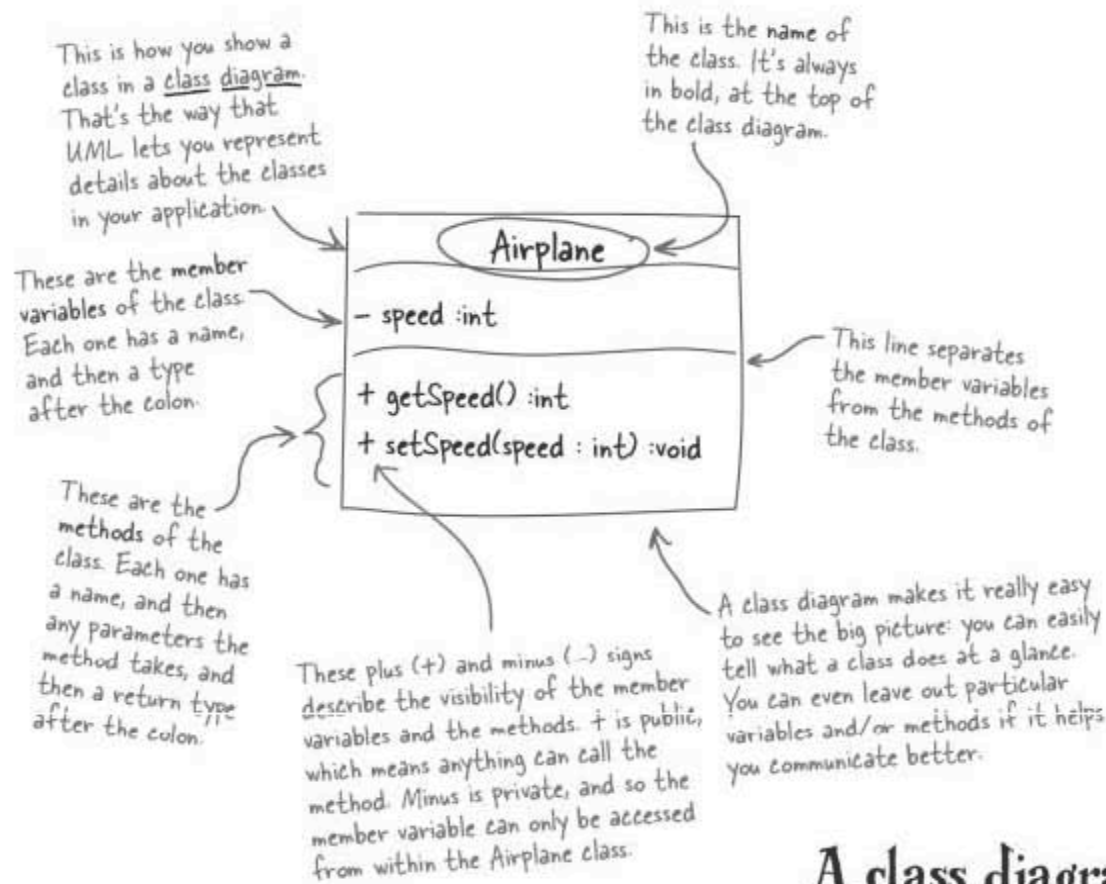 This is how you show a
class in a class diagram.
That's the way that
UML lets you represent
details about the classes
in your application.
This is the name of
the class. It's always
in bold, at the top of
the class diagram.
Airplane
These are the member
variables of the class.
Each one has a name,
and then a type
after the colon.
- speed :int
This line separates
the member variables
from the methods of
the class.
+ getSpeed() :int
+ setSpeed(speed : int) :void
These are the
methods of the
class. Each one has
a name, and then
any parameters the
method takes, and
then a return type
after the colon.
These plus (+) and minus (-) signs
describe the visibility of the member
variables and the methods. + is public,
which means anything can call the
method. Minus is private, and so the
member variable can only be accessed
from within the Airplane class.
A class diagram makes it really easy
to see the big picture: you can easily
tell what a class does at a glance.
You can even leave out particular
variables and/or methods if it helps
you communicate better.
A class diagra